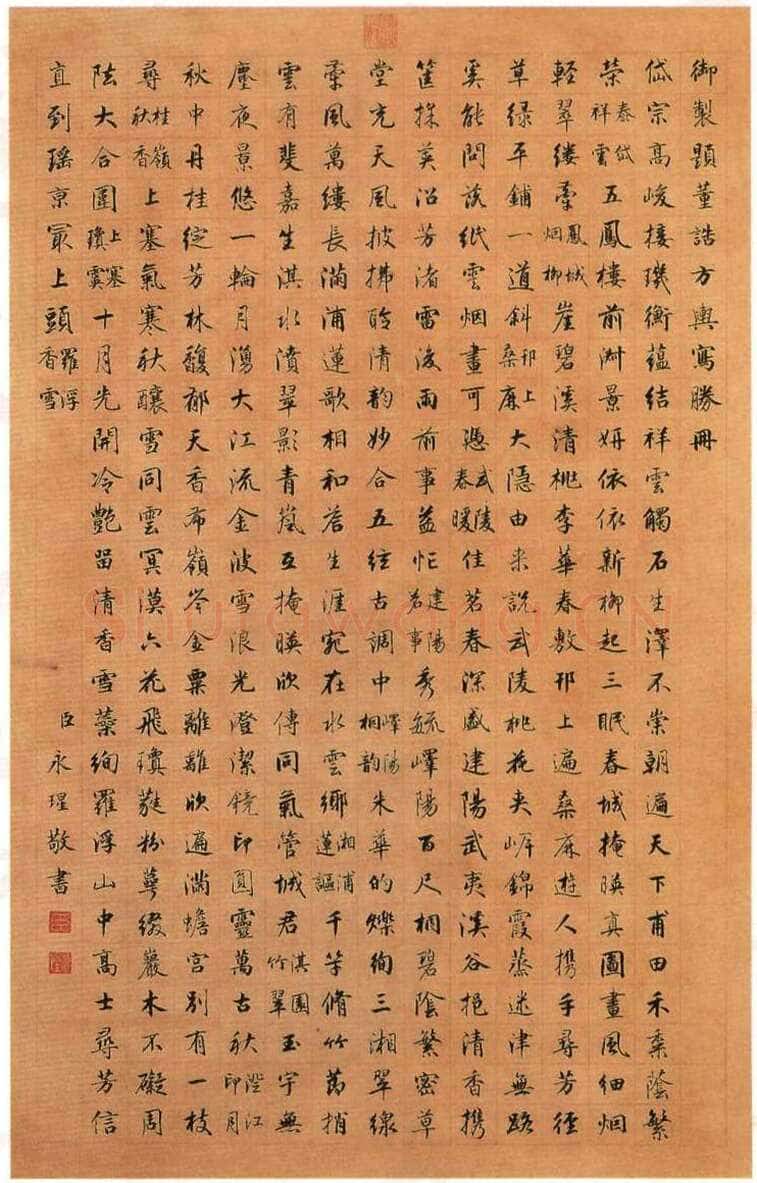 御製題董誥方輿寫勝冊
岱宗高峻接璣衡蘊結祥雲觸石生澤不崇朝遍天下甫田禾黍蔭繁
榮泰岱祥雲五鳳樓前淑景妍依依新柳起三眠春城掩映真圖畫風細烟
輕翠縷牽鳳城烟柳崖碧溪清桃李華春敷邗上遍桑麻遊人攜手尋芳徑
草綠平鋪一道斜邗上桑麻大隱由来說武陵桃花夾岸錦霞蒸迷津無路
奚能問落紙雲烟畫可憑武陵春暖佳茗春深盛建陽武夷溪谷挹清香携
筐採英沿芳渚雷後雨前事益忙建陽茗事秀毓嶧陽百尺桐碧陰繁密草
堂充天風披拂聆清韵妙合五絃古調中嶧陽桐韵朱華的爍絢三湘翠線
牽風萬縷長滿浦蓮歌相和答生涯宛在水雲鄉湘浦蓮謳千竿脩竹萬梢
雲有斐嘉生淇水濆翠影青嵐互掩映欣傳同氣管城君淇園竹翠玉宇無
塵夜景悠一輪月湧大江流金波雪浪光澄潔鏡印圓靈萬古秋澄江印月
秋中丹桂綻芳林馥郁天香布嶺岑金粟離離欣遍滿蟾宮別有一枝
尋桂嶺秋香上塞氣寒秋釀雪同雲冥漠六花飛瓊蕤粉萼綴巖木不礙周
阹大合圍上塞瓊十月先開冷艷留清香雪蘂絢羅浮山中高士尋芳信
直到瑤京冣上頭羅浮香雪
臣永瑆敬書